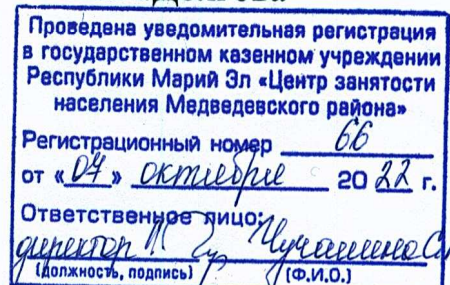 Проведена уведомительная регистрация
в государственном казенном учреждении
Республики Марий Эл «Центр занятости
населения Медведевского района»
Регистрационный номер 66
от «04» октября 2022 г.
Ответственное лицо:
директор
(должность, подпись) (Ф.И.О.)